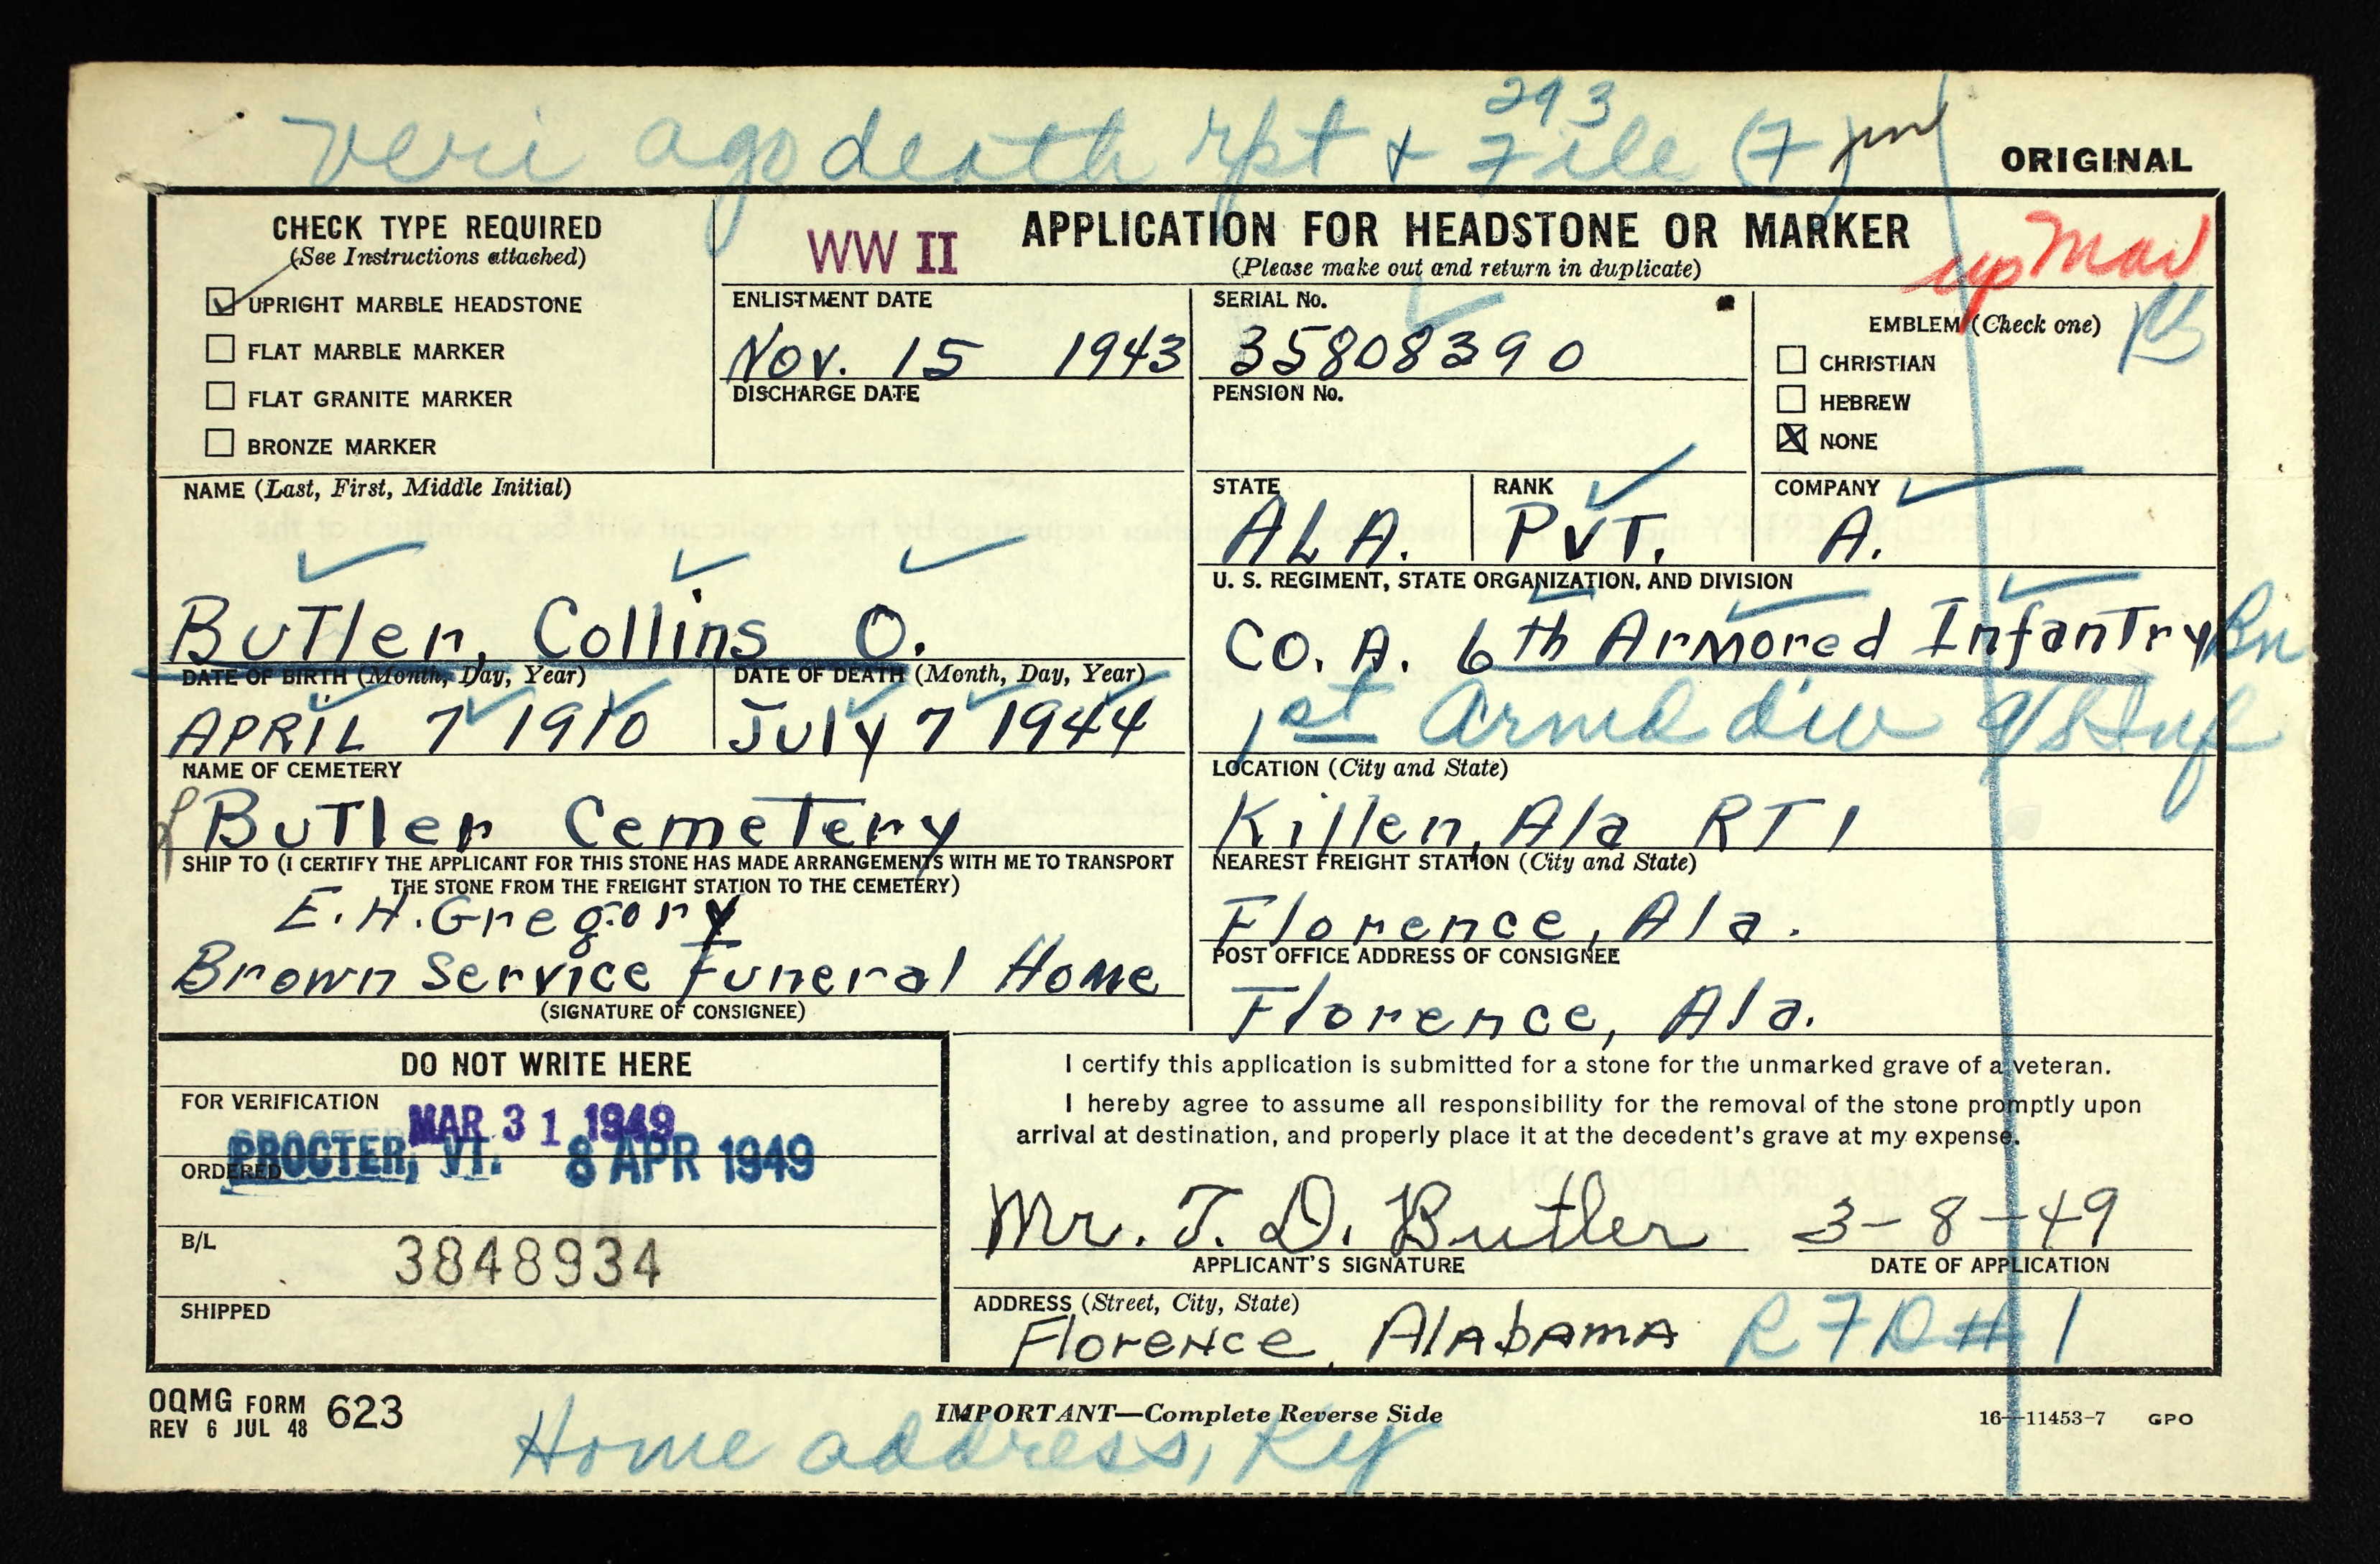 veri ago death rpt + 293 File (7)
ORIGINAL
CHECK TYPE REQUIRED
(See Instructions attached)
UPRIGHT MARBLE HEADSTONE
FLAT MARBLE MARKER
FLAT GRANITE MARKER
BRONZE MARKER
WW II
APPLICATION FOR HEADSTONE OR MARKER
(Please make out and return in duplicate)
ENLISTMENT DATE
Nov. 15 1943
DISCHARGE DATE
SERIAL No.
35808390
PENSION No.
up
EMBLEM (Check one)
CHRISTIAN
HEBREW
NONE
NAME (Last, First, Middle Initial)
Butler, Collins O.
STATE
ALA.
RANK
PVT.
COMPANY
A.
U. S. REGIMENT, STATE ORGANIZATION, AND DIVISION
CO. A. 6th Armored Infantry Bn
1st Armd div
DATE OF BIRTH (Month, Day, Year)
APRIL 7 1910
DATE OF DEATH (Month, Day, Year)
July 7 1944
NAME OF CEMETERY
Butler Cemetery
LOCATION (City and State)
Killen, Ala RT 1
SHIP TO (I CERTIFY THE APPLICANT FOR THIS STONE HAS MADE ARRANGEMENTS WITH ME TO TRANSPORT
THE STONE FROM THE FREIGHT STATION TO THE CEMETERY)
E. H. Gregory
Brown Service Funeral Home
(SIGNATURE OF CONSIGNEE)
NEAREST FREIGHT STATION (City and State)
Florence, Ala.
POST OFFICE ADDRESS OF CONSIGNEE
Florence, Ala.
DO NOT WRITE HERE
FOR VERIFICATION
MAR 31 1949
ORDERED
PROCTER, VT. 8 APR 1949
B/L
3848934
SHIPPED
I certify this application is submitted for a stone for the unmarked grave of a veteran.
I hereby agree to assume all responsibility for the removal of the stone promptly upon
arrival at destination, and properly place it at the decedent's grave at my expense.
Mr. T. D. Butler 3-8-49
APPLICANT'S SIGNATURE
DATE OF APPLICATION
ADDRESS (Street, City, State)
Florence, Alabama RFD #1
OQMG FORM 623
REV 6 JUL 48
IMPORTANT—Complete Reverse Side
16—11453-7 GPO
Home address, Ky